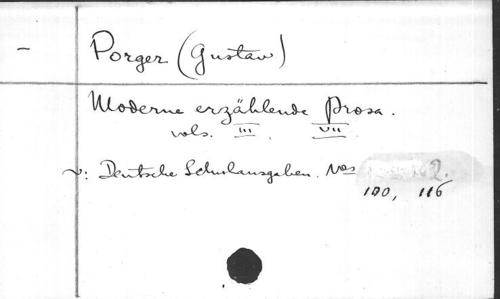 –
Porger (Gustav)
Moderne erzählende Prosa.
vols. III. VII
v: Deutsche Schulausgaben. Nos
100, 116